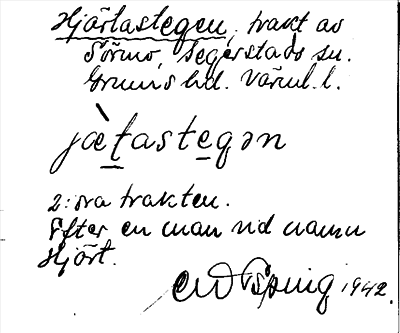 Hjärtastegen, trakt av
Sörmo, Segerstads sn.
Grums hd. Värml. l.
jæ̀t̠aste̠gən
2: ova trakten.
Efter en man vid namn
Hjärt.
1942.